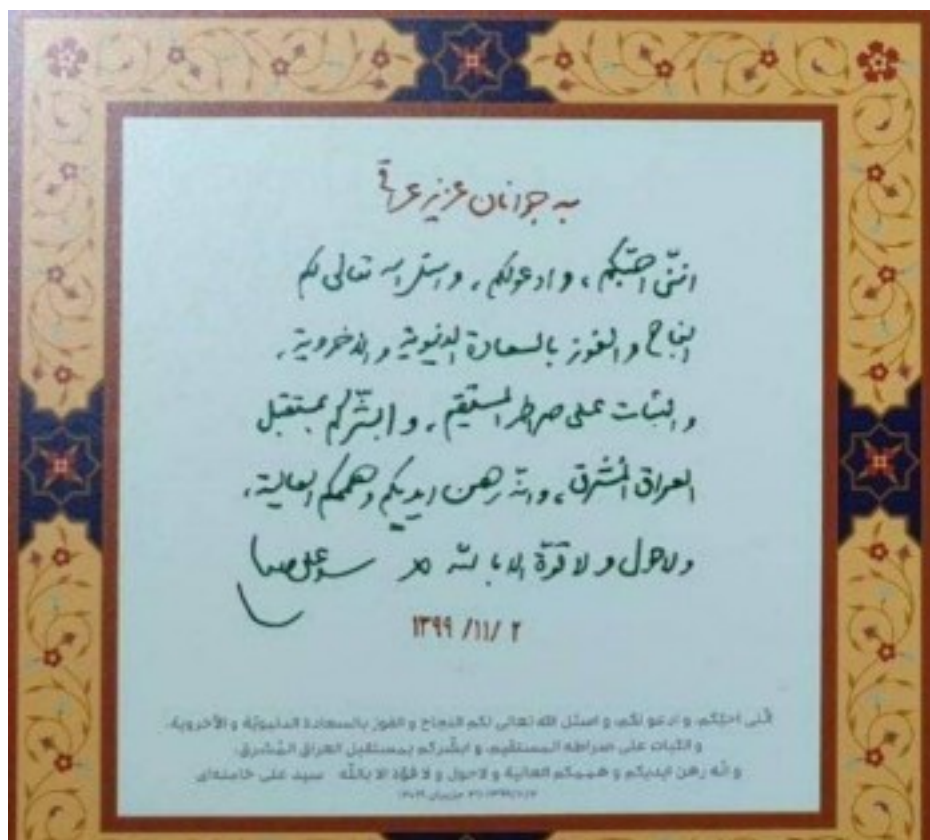 به جوانان عزیز عراقی
اننّی احبّکم، و ادعولکم، و اسئل اله تعالی لکم
النجاح و الفوز بالسعادة الدنیویة و الاخرویة،
و الثبات علی صراطه المستقیم، و ابشّرکم بمستقبل
العراق المُشرق، و انّه رهن ایدیکم و هممکم العالیة،
ولاحول و لا قوّة الا بالله سید علی
۱۳۹۹ /۱۱/ ۲
انّنی احبّکم، و ادعو لکم، و اسئل الله تعالی لکم النجاح و الفوز بالسعادة الدنیویّة و الأخرویة،
و الثبات علی صراطه المستقیم، و ابشّرکم بمستقبل العراق المُشرق،
و انّه رهن ایدیکم و هممکم العالیة و لاحول و لا قوّة الا باللّه سید علی خامنه‌ای